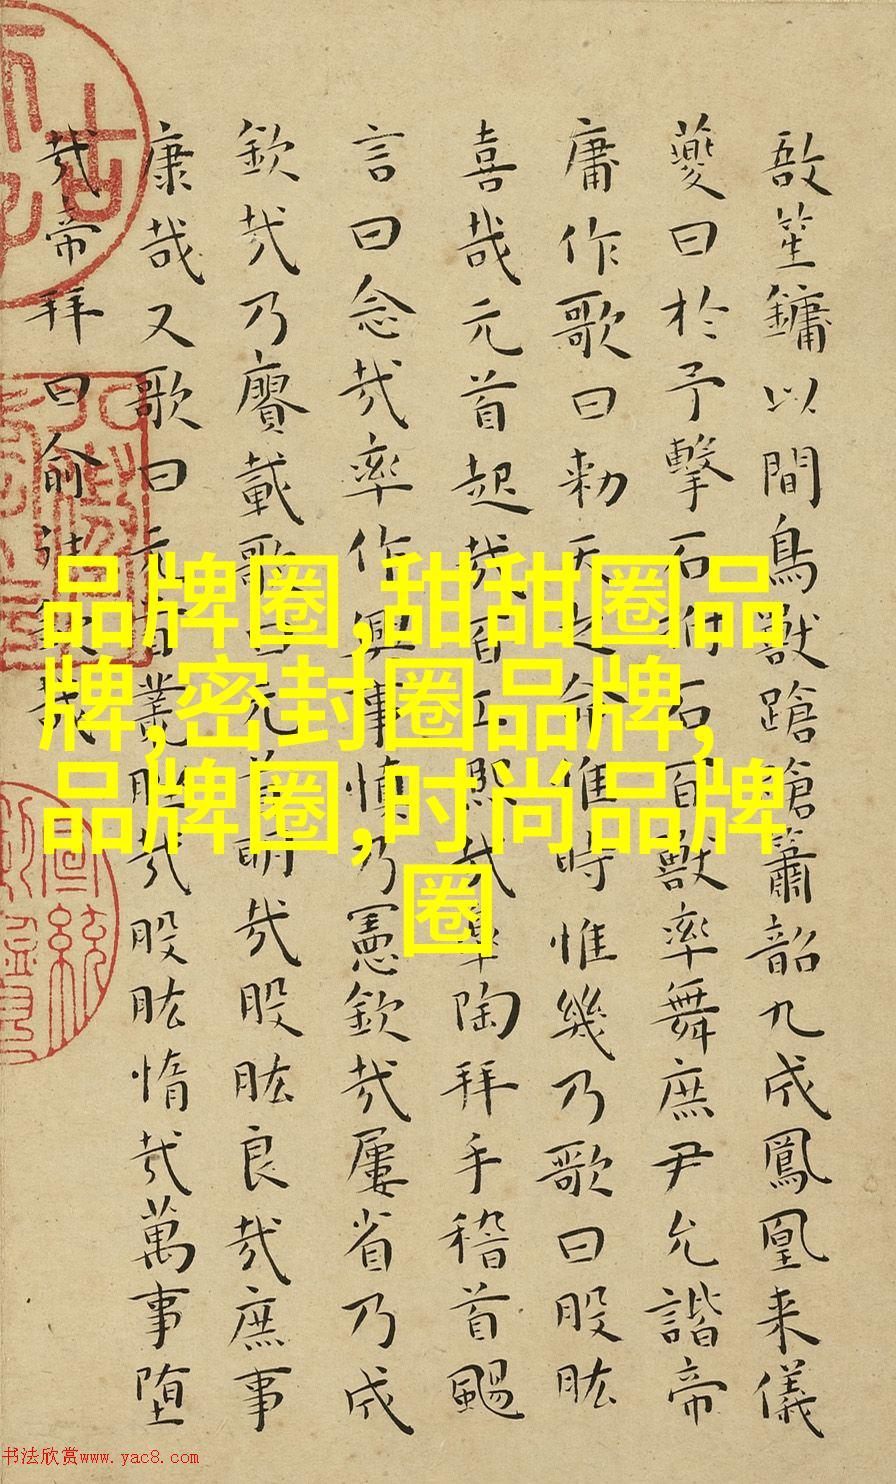 敔笙鏞以間鳥獸蹌蹌簫韶九成鳳凰来儀
夔曰於予擊石拊石百獸率舞庶尹允諧帝
庸作歌曰勑天之命惟時惟幾乃歌曰股肱
喜哉元首起哉百工熙哉皐陶拜手稽首颺
言曰念哉率作興事慎乃憲欽哉屢省乃成
欽哉乃賡載歌曰元首明哉股肱良哉庶事
康哉又歌曰元首叢脞哉股肱惰哉萬事堕
哉帝拜曰俞往欽哉
品牌圈,甜甜圈品
牌,密封圈品牌,
品牌圈,时尚品牌
圈
书法欣赏www.yac8.com